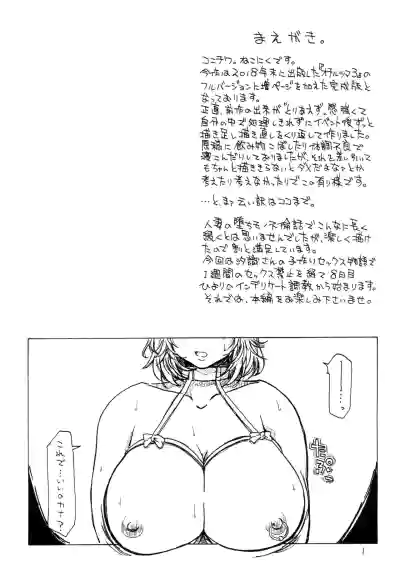 まえがき。
コニチワ。ねこにくです。
今作は2018年末に出版した『オナルママ3』の
フルバージョンに増ページを加えた完成版と
なっております。
正直、前作の出来が「とりあえず」感強くて
自分の中で処理しきれずにイベント後ずっと
描き足し描き直しをくり返して作りました。
原稿に飲み物こぼしたり体調不良で
寝こんだりしておりましたが、それを差し引いて
もちゃんと描ききらないとダメだよな?とか
考えたり考えなかったりでこの有り様です。
…と、まァ言い訳はココまで。
人妻の堕ちモノ不倫話でこんなに長く
描くとは思いませんでしたが、楽しく描け
たので割と満足しています。
今回は沙織さんの子作りセックス物語で
1週間のセックス禁止を経て8日目
ひよりのインデリケート調教から始まります。
それでは、本編をお楽しみ下さいませ。
1